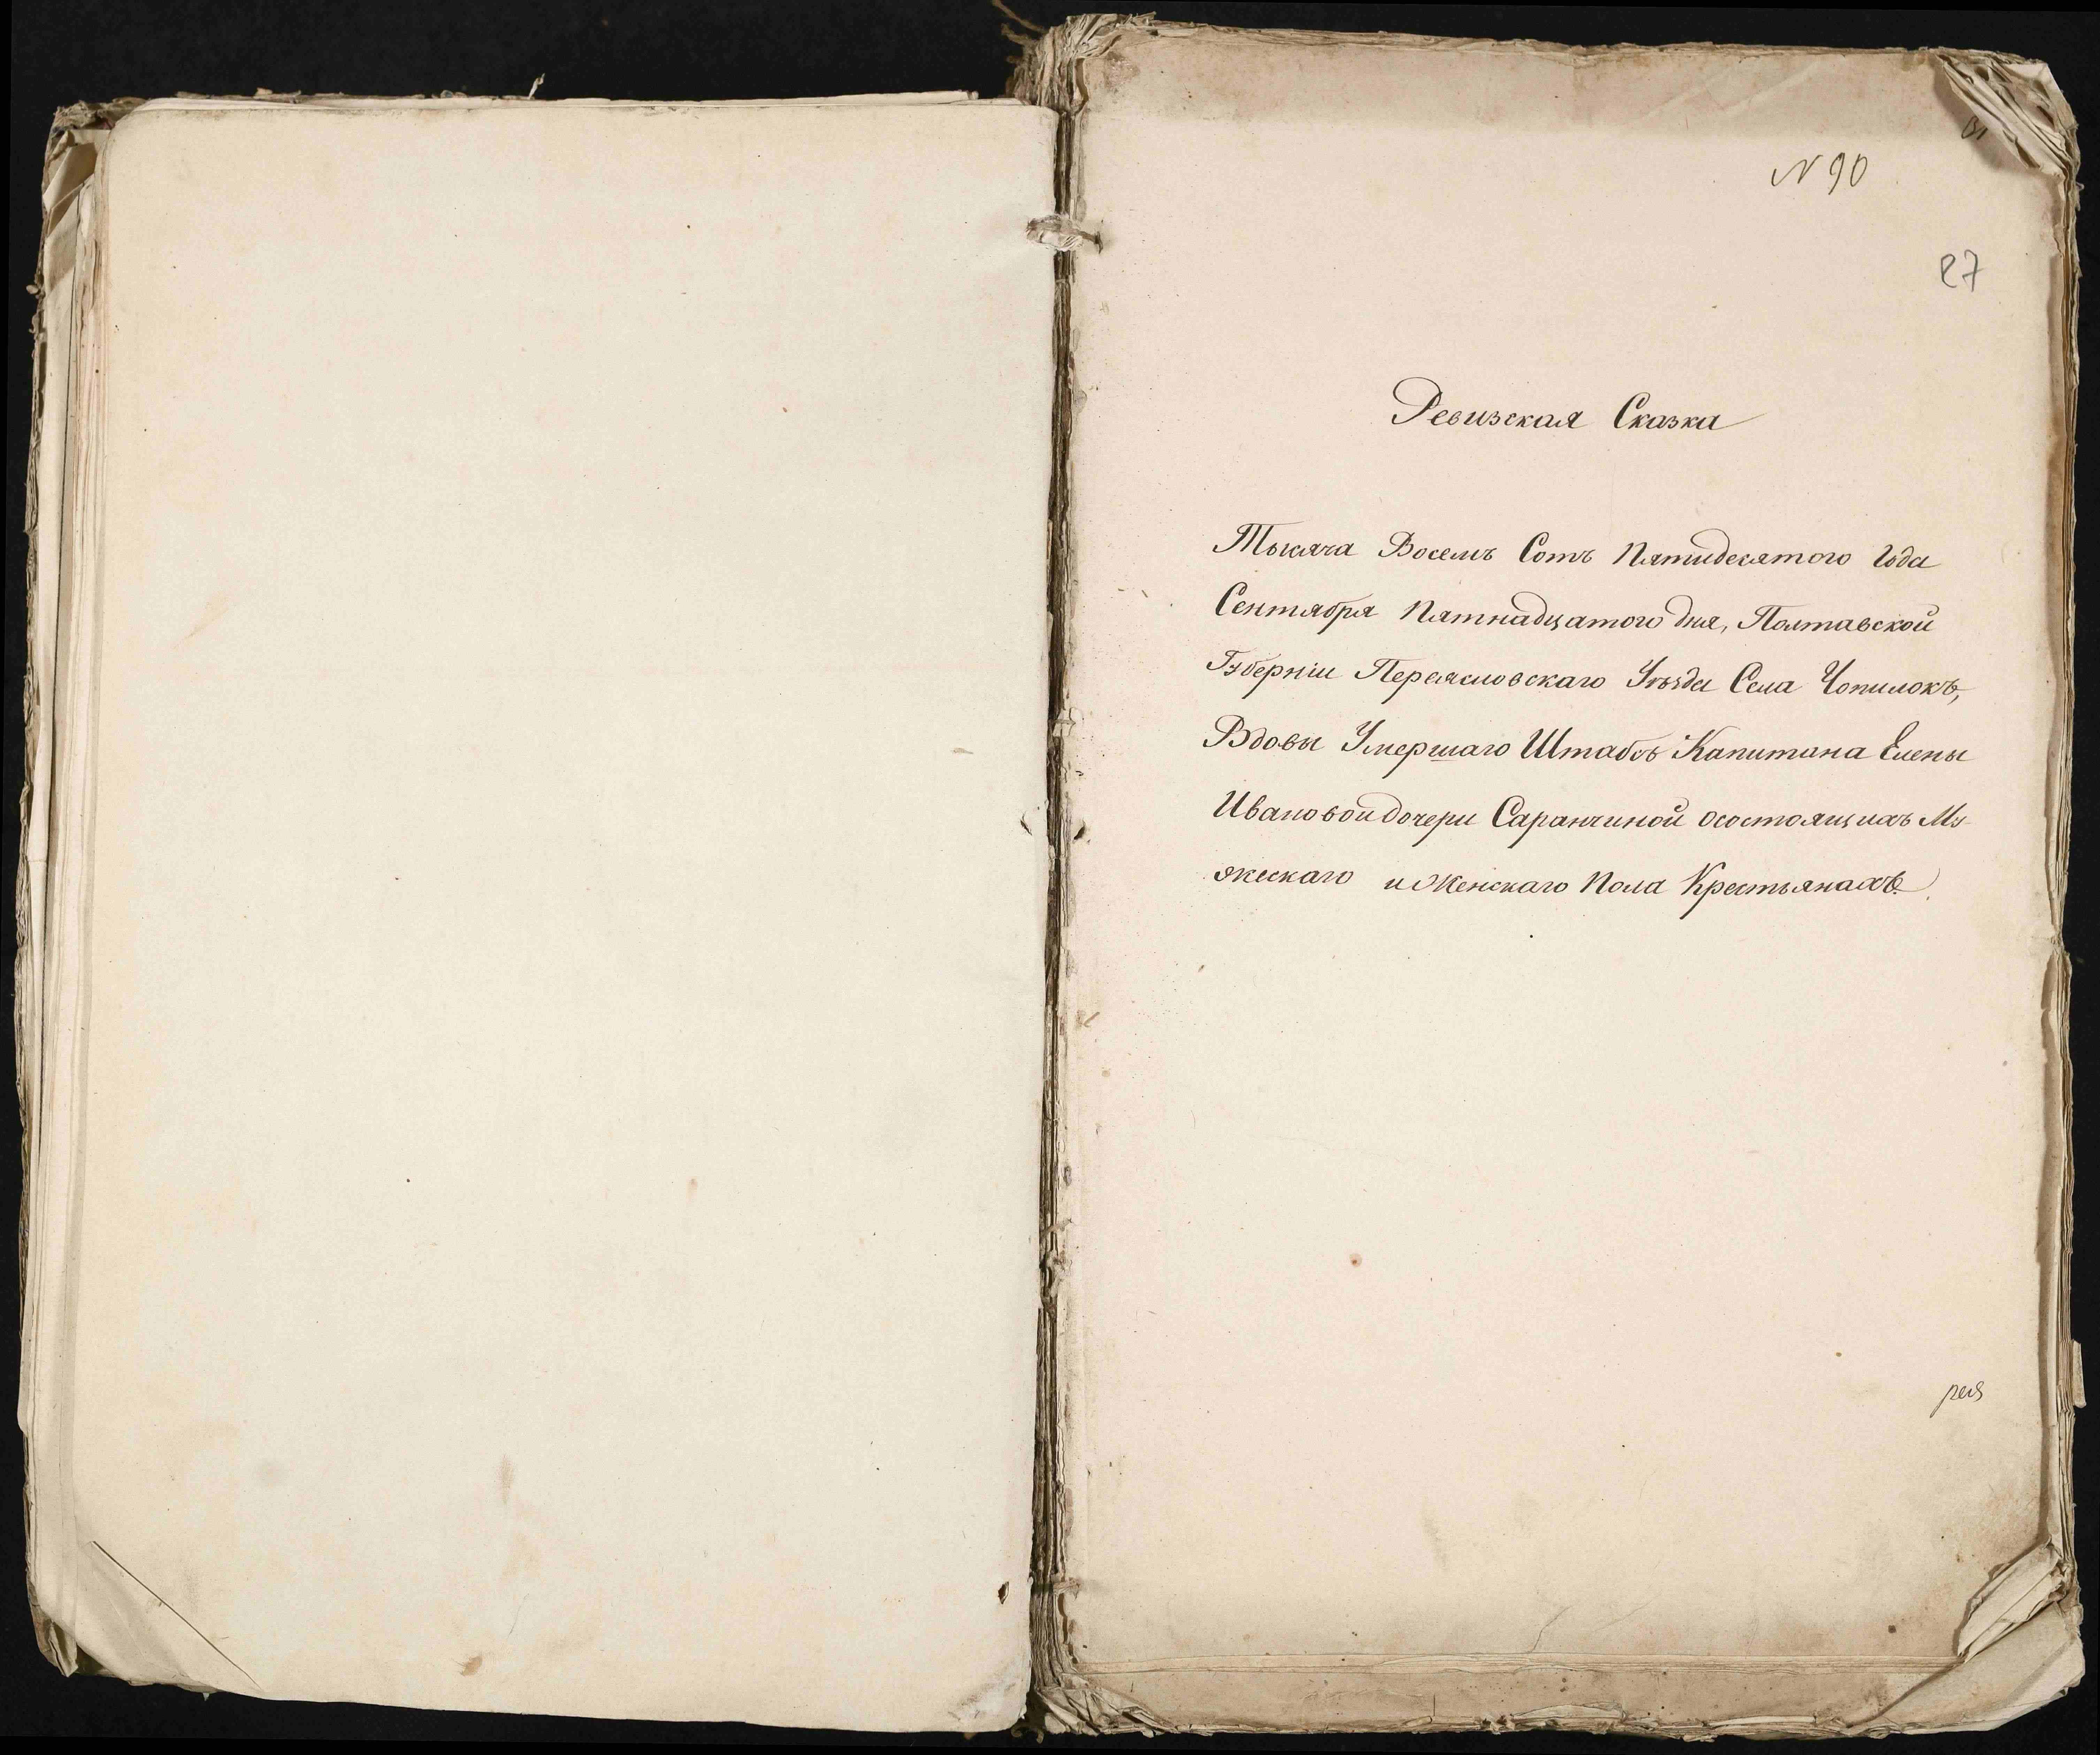 N 90
27
Ревизская Сказка
Тысяча Восемъ Сотъ Пятидесятого Года
Сентября Пятнадцатого дня, Полтавской
Губерніи Переясловскаго Уѣзда Села Чопилокъ,
Вдовы Умершаго Штабсъ Капитана Елены
Ивановой дочери Саранчиной осостоящихъ Му-
жескаго и Женскаго Пола Крестьянахъ.